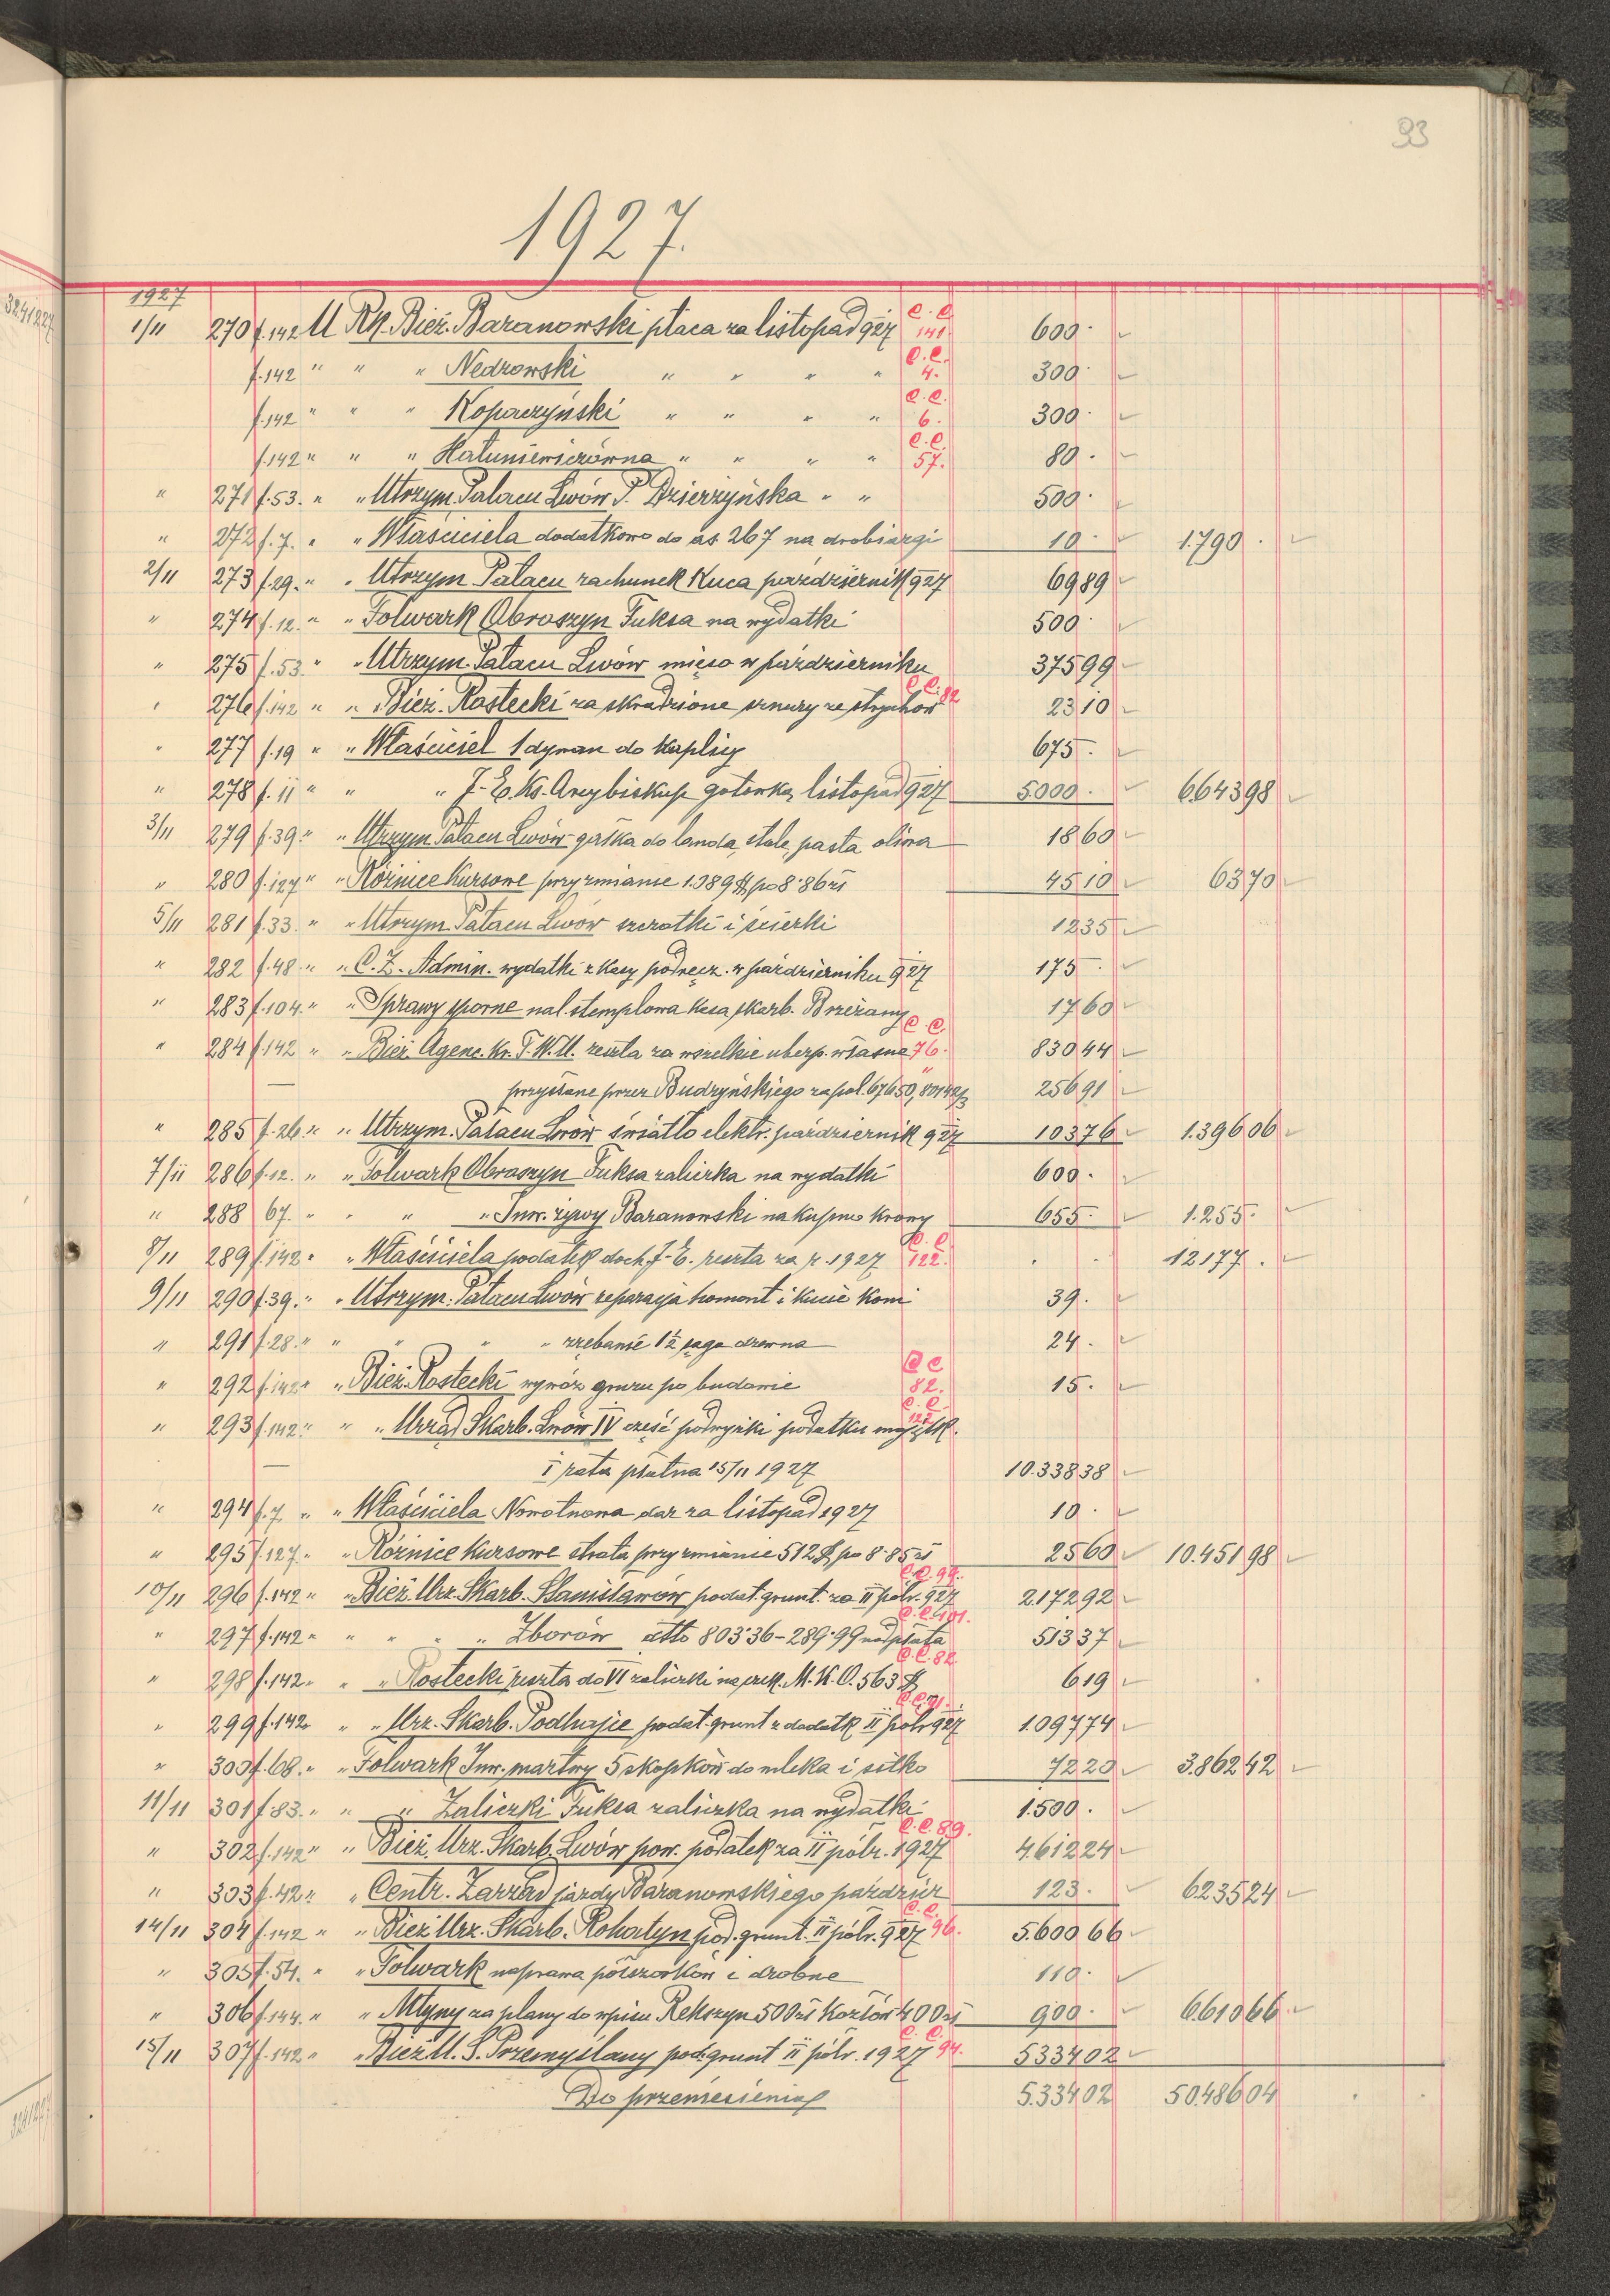 93
1927.
1927
1/11 270 f.142 U Rk. Bież. Baranowski płaca za listopad 927 C.C. 141. 600 ·
f.142 " " " Nedzowski " " " " C.C. 4. 300 ·
f.142 " " " Kopaczyński " " " " C.C. 6. 300 ·
f.142 " " " Hatuniewiczówna " " " " C.C. 57. 80 ·
" 271 f.53. " " Utrzym. Pałacu Lwów P. Dzierżyńska " " 500 ·
" 272 f.7. " " Właściciela dodatkowo do as 267 na drobiazgi 10 · 1.790 ·
2/11 273 f.29. " " Utrzym. Pałacu rachunek Kuca październik 927 69 89
" 274 f.12. " " Folwark Obroszyn Fuksa na wydatki 500 ·
" 275 f.53. " " Utrzym. Pałacu Lwów mięso w październiku 375 99
" 276 f.142 " " Bież. Rostecki za skradzione sznury ze strychów C.C. 82 23 10
" 277 f.19 " " Właściciel 1 dywan do kaplicy 675 ·
" 278 f.11 " " " J.E. Ks. Arcybiskup gotówką listopad 927 5000 · 6.643 98
3/11 279 f.39. " " Utrzym. Pałacu Lwów gąbka do landa, stale, pasta oliwa 18 60
" 280 f.127 " " Różnice Kursowe przy zmianie 1.389 $ po 8·86 zł 45 10 63 70
5/11 281 f.33. " " Utrzym. Pałacu Lwów szczotki i ścierki 12 35
" 282 f.48. " " C.Z. Admin. wydatki z kasy podręcz. w październiku 927 175 ·
" 283 f.104. " " Sprawy sporne nal. stemplowa kasa skarb. Brzeżany 17 60
" 284 f.142 " " Bież. Agenc. Kr. T.W.U. reszta za wszelkie ubezp. własne C.C. 76. 830 44
— przysłane przez Budzyńskiego za pol. 67650, " 256 91
" 285 f.26. " " Utrzym. Pałacu Lwów światło elektr. październik 927 103 76 1.396 06
7/11 286 f.12. " " Folwark Obroszyn Fuksa zaliczka na wydatki 600 ·
" 288 67. " " " " Inw. żywy Baranowski na kupno krowy 655 · 1.255 ·
8/11 289 f.142. " " Właściciela podatek doch. J.E. reszta za r. 1927 C.C. 122. · · 12177 ·
9/11 290 f.39. " " Utrzym. Pałacu Lwów reparacja homont i kucie koni 39 ·
" 291 f.28. " " " " " zrębanie 1½ sąga drzewa 24 ·
" 292 f.142 " " Bież. Rostecki wywóz gruzu po budowie C.C. 82. 15 ·
" 293 f.142. " " " Urząd Skarb. Lwów IV część podwyżki podatku majątk. C.C. 122
— I rata płatna 15/11 1927 10.338 38
" 294 f.7. " " Właściciela Nowotnowa dar za listopad 1927 10 ·
" 295 f.127. " " Różnice Kursowe strata przy zmianie 512 $ po 8·85 zł 25 60 10.451 98
10/11 296 f.142 " " Bież. Urz. Skarb. Stanisławów podat. grunt. za II półr. 927 C.C. 99. 2.172 92
" 297 f.142 " " " " " Zborów dtto 803·36 - 289·99 nadpłata C.C. 101. 513 37
" 298 f.142. " " " Rostecki reszta do VI zaliczki na rek. M.K.O. 563 $ C.C. 82 6 19
" 299 f.142 " " " Urz. Skarb. Podhajce podat. grunt z dodatk. II półr 927 C.C. 91. 1.097 74
" 300 f.68. " " Folwark Inw. martwy 5 skopków do mleka i sitko 72 20 3.862 42
11/11 301 f.83. " " " Zaliczki Fuksa zaliczka na wydatki 1.500 ·
" 302 f.142 " " Bież. Urz. Skarb. Lwów pow. podatek za II półr. 1927 C.C. 89. 4.612 24
" 303 f.42 " " Centr. Zarząd jazdy Baranowskiego paździer 123 · 6235 24
14/11 304 f.142 " " Bież Urz. Skarb. Rohatyn pod. grunt. II półr. 927 C.C. 96. 5.600 66
" 305 f.54. " " Folwark naprawa półszorków i drobne 110 ·
" 306 f.144. " " Młyny za plany do wpisu Rekszyn 500 zł Kozłów 400 zł 900 · 6.610 66
15/11 307 f.142 " " Bież U.S. Przemyślany pod. grunt II półr. 1927 C.C. 94. 5334 02
Do przeniesienia 5.334 02 50.486 04